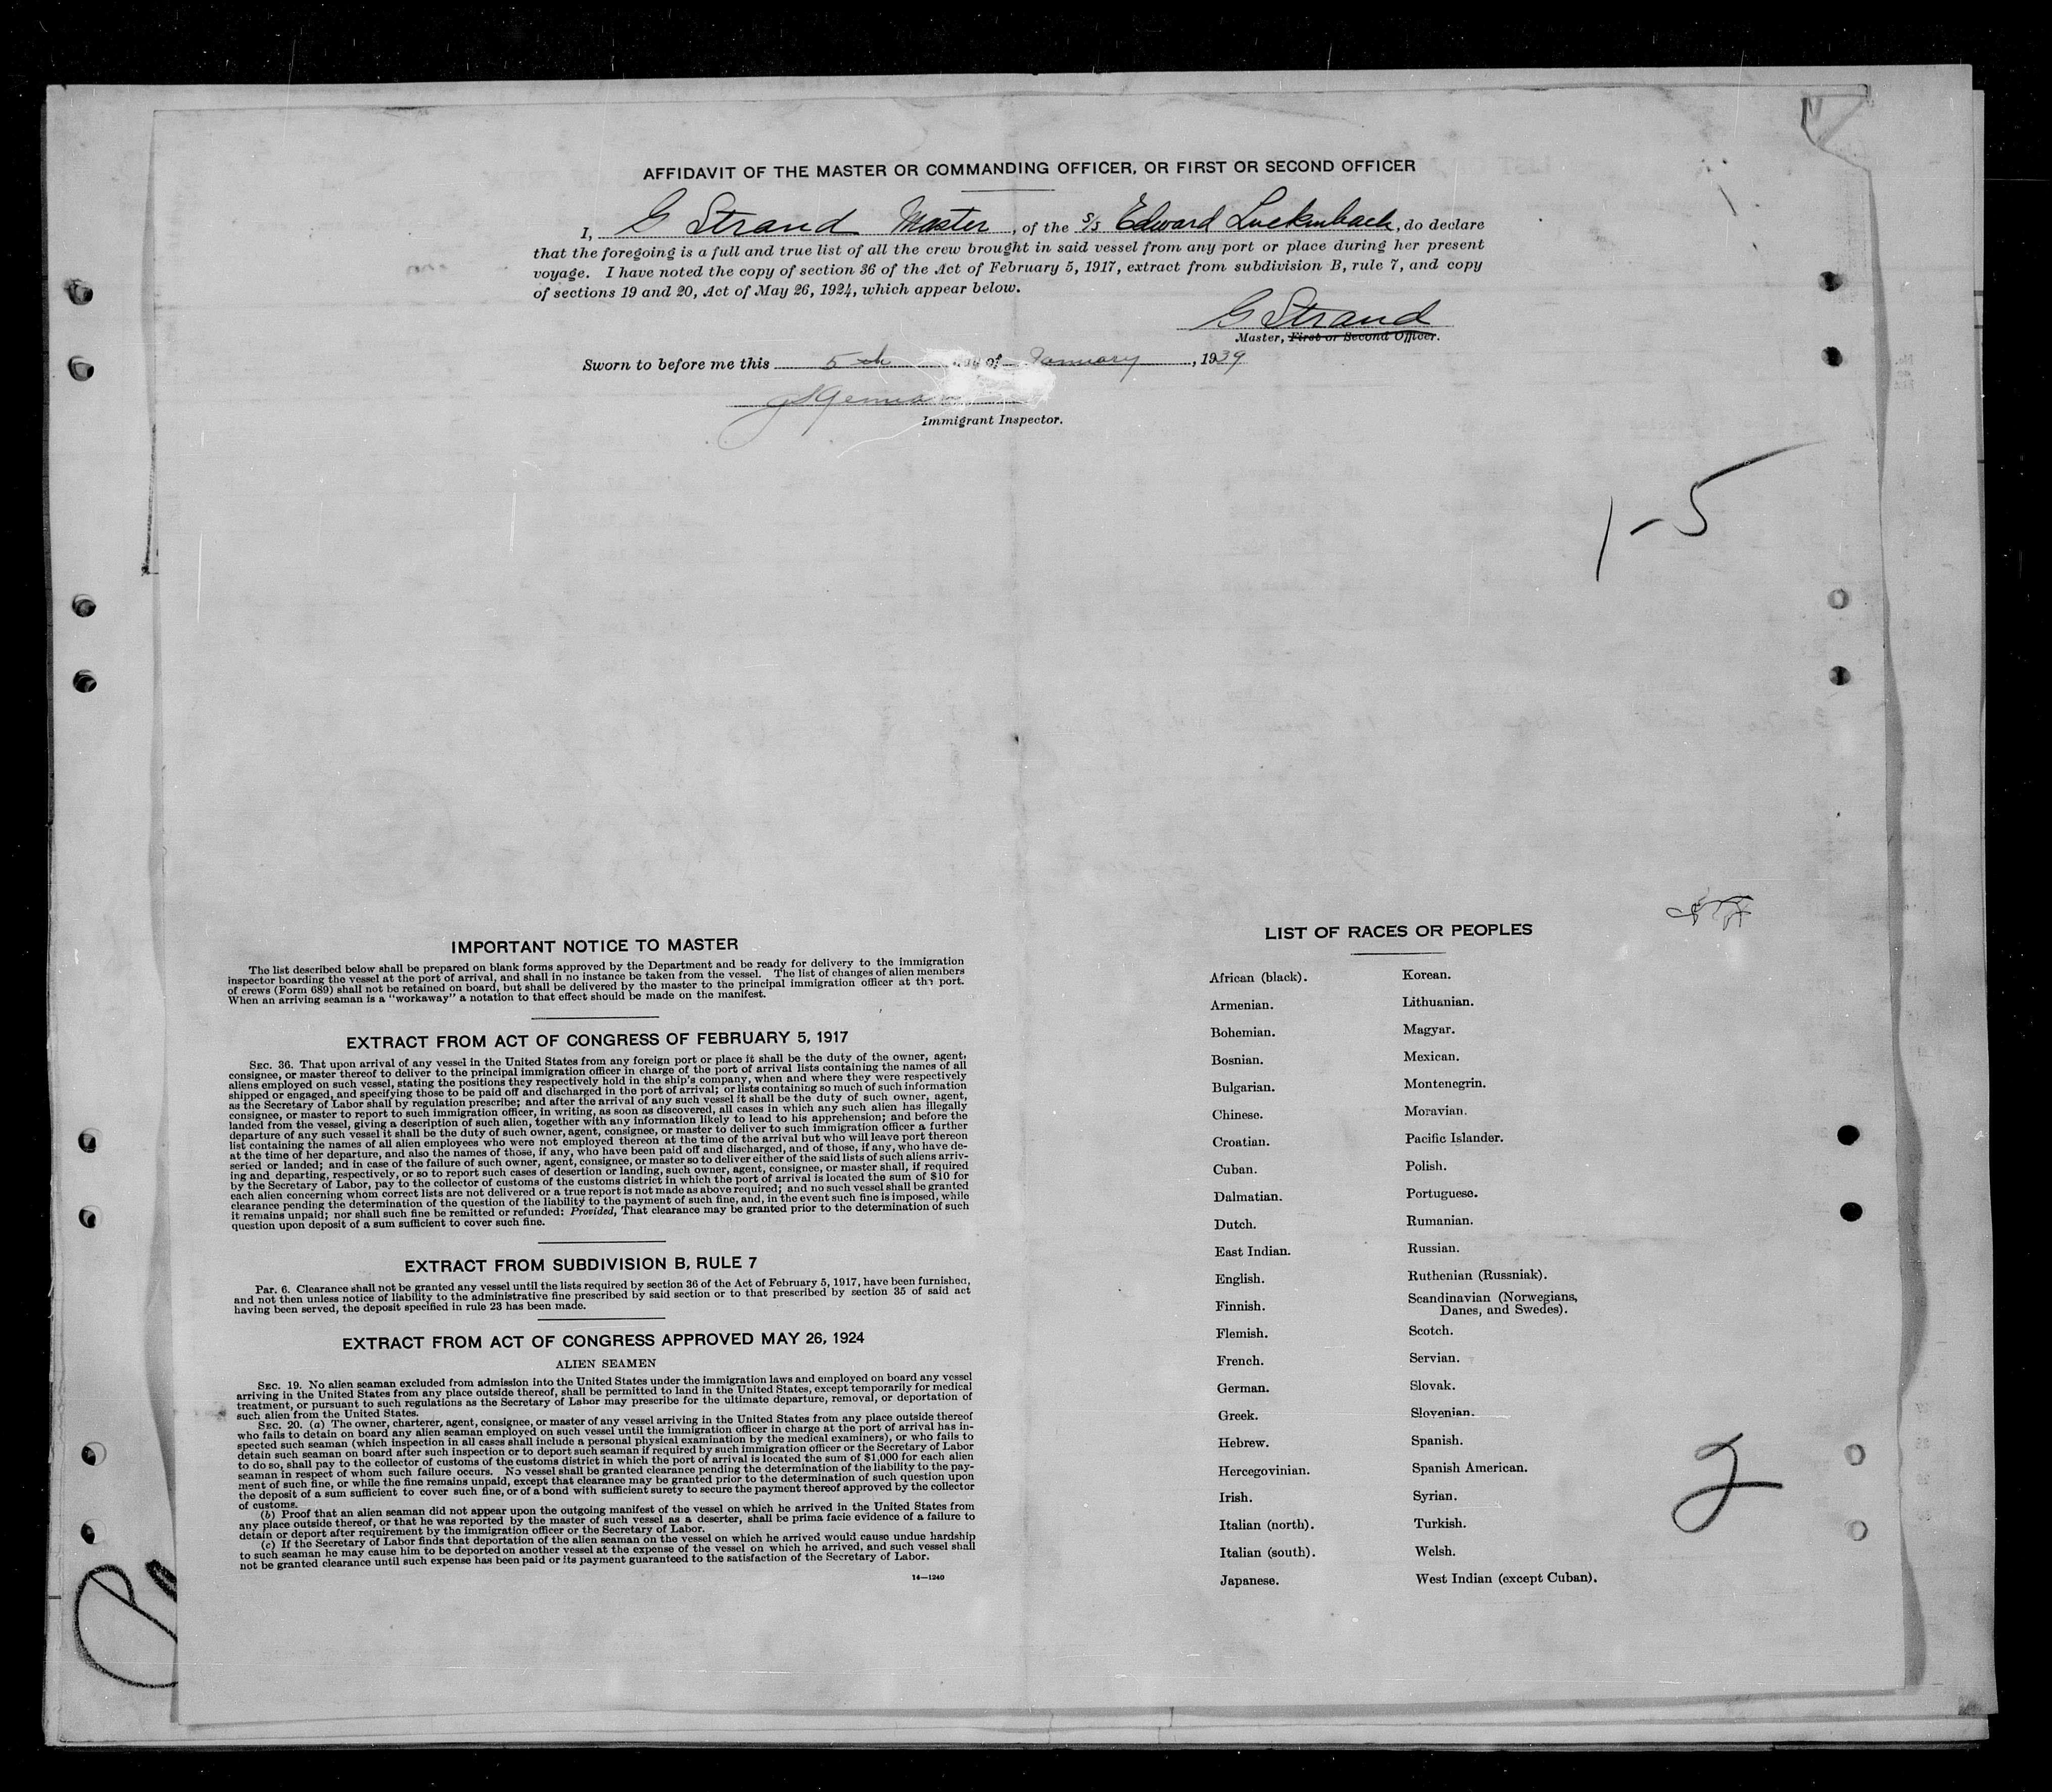 AFFIDAVIT OF THE MASTER OR COMMANDING OFFICER, OR FIRST OR SECOND OFFICER
I, G Strand Master, of the S/S Edward Luckenbach, do declare
that the foregoing is a full and true list of all the crew brought in said vessel from any port or place during her present
voyage. I have noted the copy of section 36 of the Act of February 5, 1917, extract from subdivision B, rule 7, and copy
of sections 19 and 20, Act of May 26, 1924, which appear below.
G Strand
Master, First or Second Officer.
Sworn to before me this 5th day of January, 1939
Immigrant Inspector.
1-5
IMPORTANT NOTICE TO MASTER
The list described below shall be prepared on blank forms approved by the Department and be ready for delivery to the immigration
inspector boarding the vessel at the port of arrival, and shall in no instance be taken from the vessel. The list of changes of alien members
of crews (Form 689) shall not be retained on board, but shall be delivered by the master to the principal immigration officer at the port.
When an arriving seaman is a "workaway" a notation to that effect should be made on the manifest.
EXTRACT FROM ACT OF CONGRESS OF FEBRUARY 5, 1917
SEC. 36. That upon arrival of any vessel in the United States from any foreign port or place it shall be the duty of the owner, agent,
consignee, or master thereof to deliver to the principal immigration officer in charge of the port of arrival lists containing the names of all
aliens employed on such vessel, stating the positions they respectively hold in the ship's company, when and where they were respectively
shipped or engaged, and specifying those to be paid off and discharged in the port of arrival; or lists containing so much of such information
as the Secretary of Labor shall by regulation prescribe; and after the arrival of any such vessel it shall be the duty of such owner, agent,
consignee, or master to report to such immigration officer, in writing, as soon as discovered, all cases in which any such alien has illegally
landed from the vessel, giving a description of such alien, together with any information likely to lead to his apprehension; and before the
departure of any such vessel it shall be the duty of such owner, agent, consignee, or master to deliver to such immigration officer a further
list containing the names of all alien employees who were not employed thereon at the time of the arrival but who will leave port thereon
at the time of her departure, and also the names of those, if any, who have been paid off and discharged, and of those, if any, who have de-
serted or landed; and in case of the failure of such owner, agent, consignee, or master so to deliver either of the said lists of such aliens arriv-
ing and departing, respectively, or so to report such cases of desertion or landing, such owner, agent, consignee, or master shall, if required
by the Secretary of Labor, pay to the collector of customs of the customs district in which the port of arrival is located the sum of $10 for
each alien concerning whom correct lists are not delivered or a true report is not made as above required; and no such vessel shall be granted
clearance pending the determination of the question of the liability to the payment of such fine, and, in the event such fine is imposed, while
it remains unpaid; nor shall such fine be remitted or refunded: Provided, That clearance may be granted prior to the determination of such
question upon deposit of a sum sufficient to cover such fine.
EXTRACT FROM SUBDIVISION B, RULE 7
PAR. 6. Clearance shall not be granted any vessel until the lists required by section 36 of the Act of February 5, 1917, have been furnished,
and not then unless notice of liability to the administrative fine prescribed by said section or to that prescribed by section 35 of said act
having been served, the deposit specified in rule 23 has been made.
EXTRACT FROM ACT OF CONGRESS APPROVED MAY 26, 1924
ALIEN SEAMEN
SEC. 19. No alien seaman excluded from admission into the United States under the immigration laws and employed on board any vessel
arriving in the United States from any place outside thereof, shall be permitted to land in the United States, except temporarily for medical
treatment, or pursuant to such regulations as the Secretary of Labor may prescribe for the ultimate departure, removal, or deportation of
such alien from the United States.
SEC. 20. (a) The owner, charterer, agent, consignee, or master of any vessel arriving in the United States from any place outside thereof
who fails to detain on board any alien seaman employed on such vessel until the immigration officer in charge at the port of arrival has in-
spected such seaman (which inspection in all cases shall include a personal physical examination by the medical examiners), or who fails to
detain such seaman on board after such inspection or to deport such seaman if required by such immigration officer or the Secretary of Labor
to do so, shall pay to the collector of customs of the customs district in which the port of arrival is located the sum of $1,000 for each alien
seaman in respect of whom such failure occurs. No vessel shall be granted clearance pending the determination of the liability to the pay-
ment of such fine, or while the fine remains unpaid, except that clearance may be granted prior to the determination of such question upon
the deposit of a sum sufficient to cover such fine, or of a bond with sufficient surety to secure the payment thereof approved by the collector
of customs.
(b) Proof that an alien seaman did not appear upon the outgoing manifest of the vessel on which he arrived in the United States from
any place outside thereof, or that he was reported by the master of such vessel as a deserter, shall be prima facie evidence of a failure to
detain or deport after requirement by the immigration officer or the Secretary of Labor.
(c) If the Secretary of Labor finds that deportation of the alien seaman on the vessel on which he arrived would cause undue hardship
to such seaman he may cause him to be deported on another vessel at the expense of the vessel on which he arrived, and such vessel shall
not be granted clearance until such expense has been paid or its payment guaranteed to the satisfaction of the Secretary of Labor.
14—1240
LIST OF RACES OR PEOPLES
African (black).
Armenian.
Bohemian.
Bosnian.
Bulgarian.
Chinese.
Croatian.
Cuban.
Dalmatian.
Dutch.
East Indian.
English.
Finnish.
Flemish.
French.
German.
Greek.
Hebrew.
Hercegovinian.
Irish.
Italian (north).
Italian (south).
Japanese.
Korean.
Lithuanian.
Magyar.
Mexican.
Montenegrin.
Moravian.
Pacific Islander.
Polish.
Portuguese.
Rumanian.
Russian.
Ruthenian (Russniak).
Scandinavian (Norwegians,
Danes, and Swedes).
Scotch.
Servian.
Slovak.
Slovenian.
Spanish.
Spanish American.
Syrian.
Turkish.
Welsh.
West Indian (except Cuban).
2